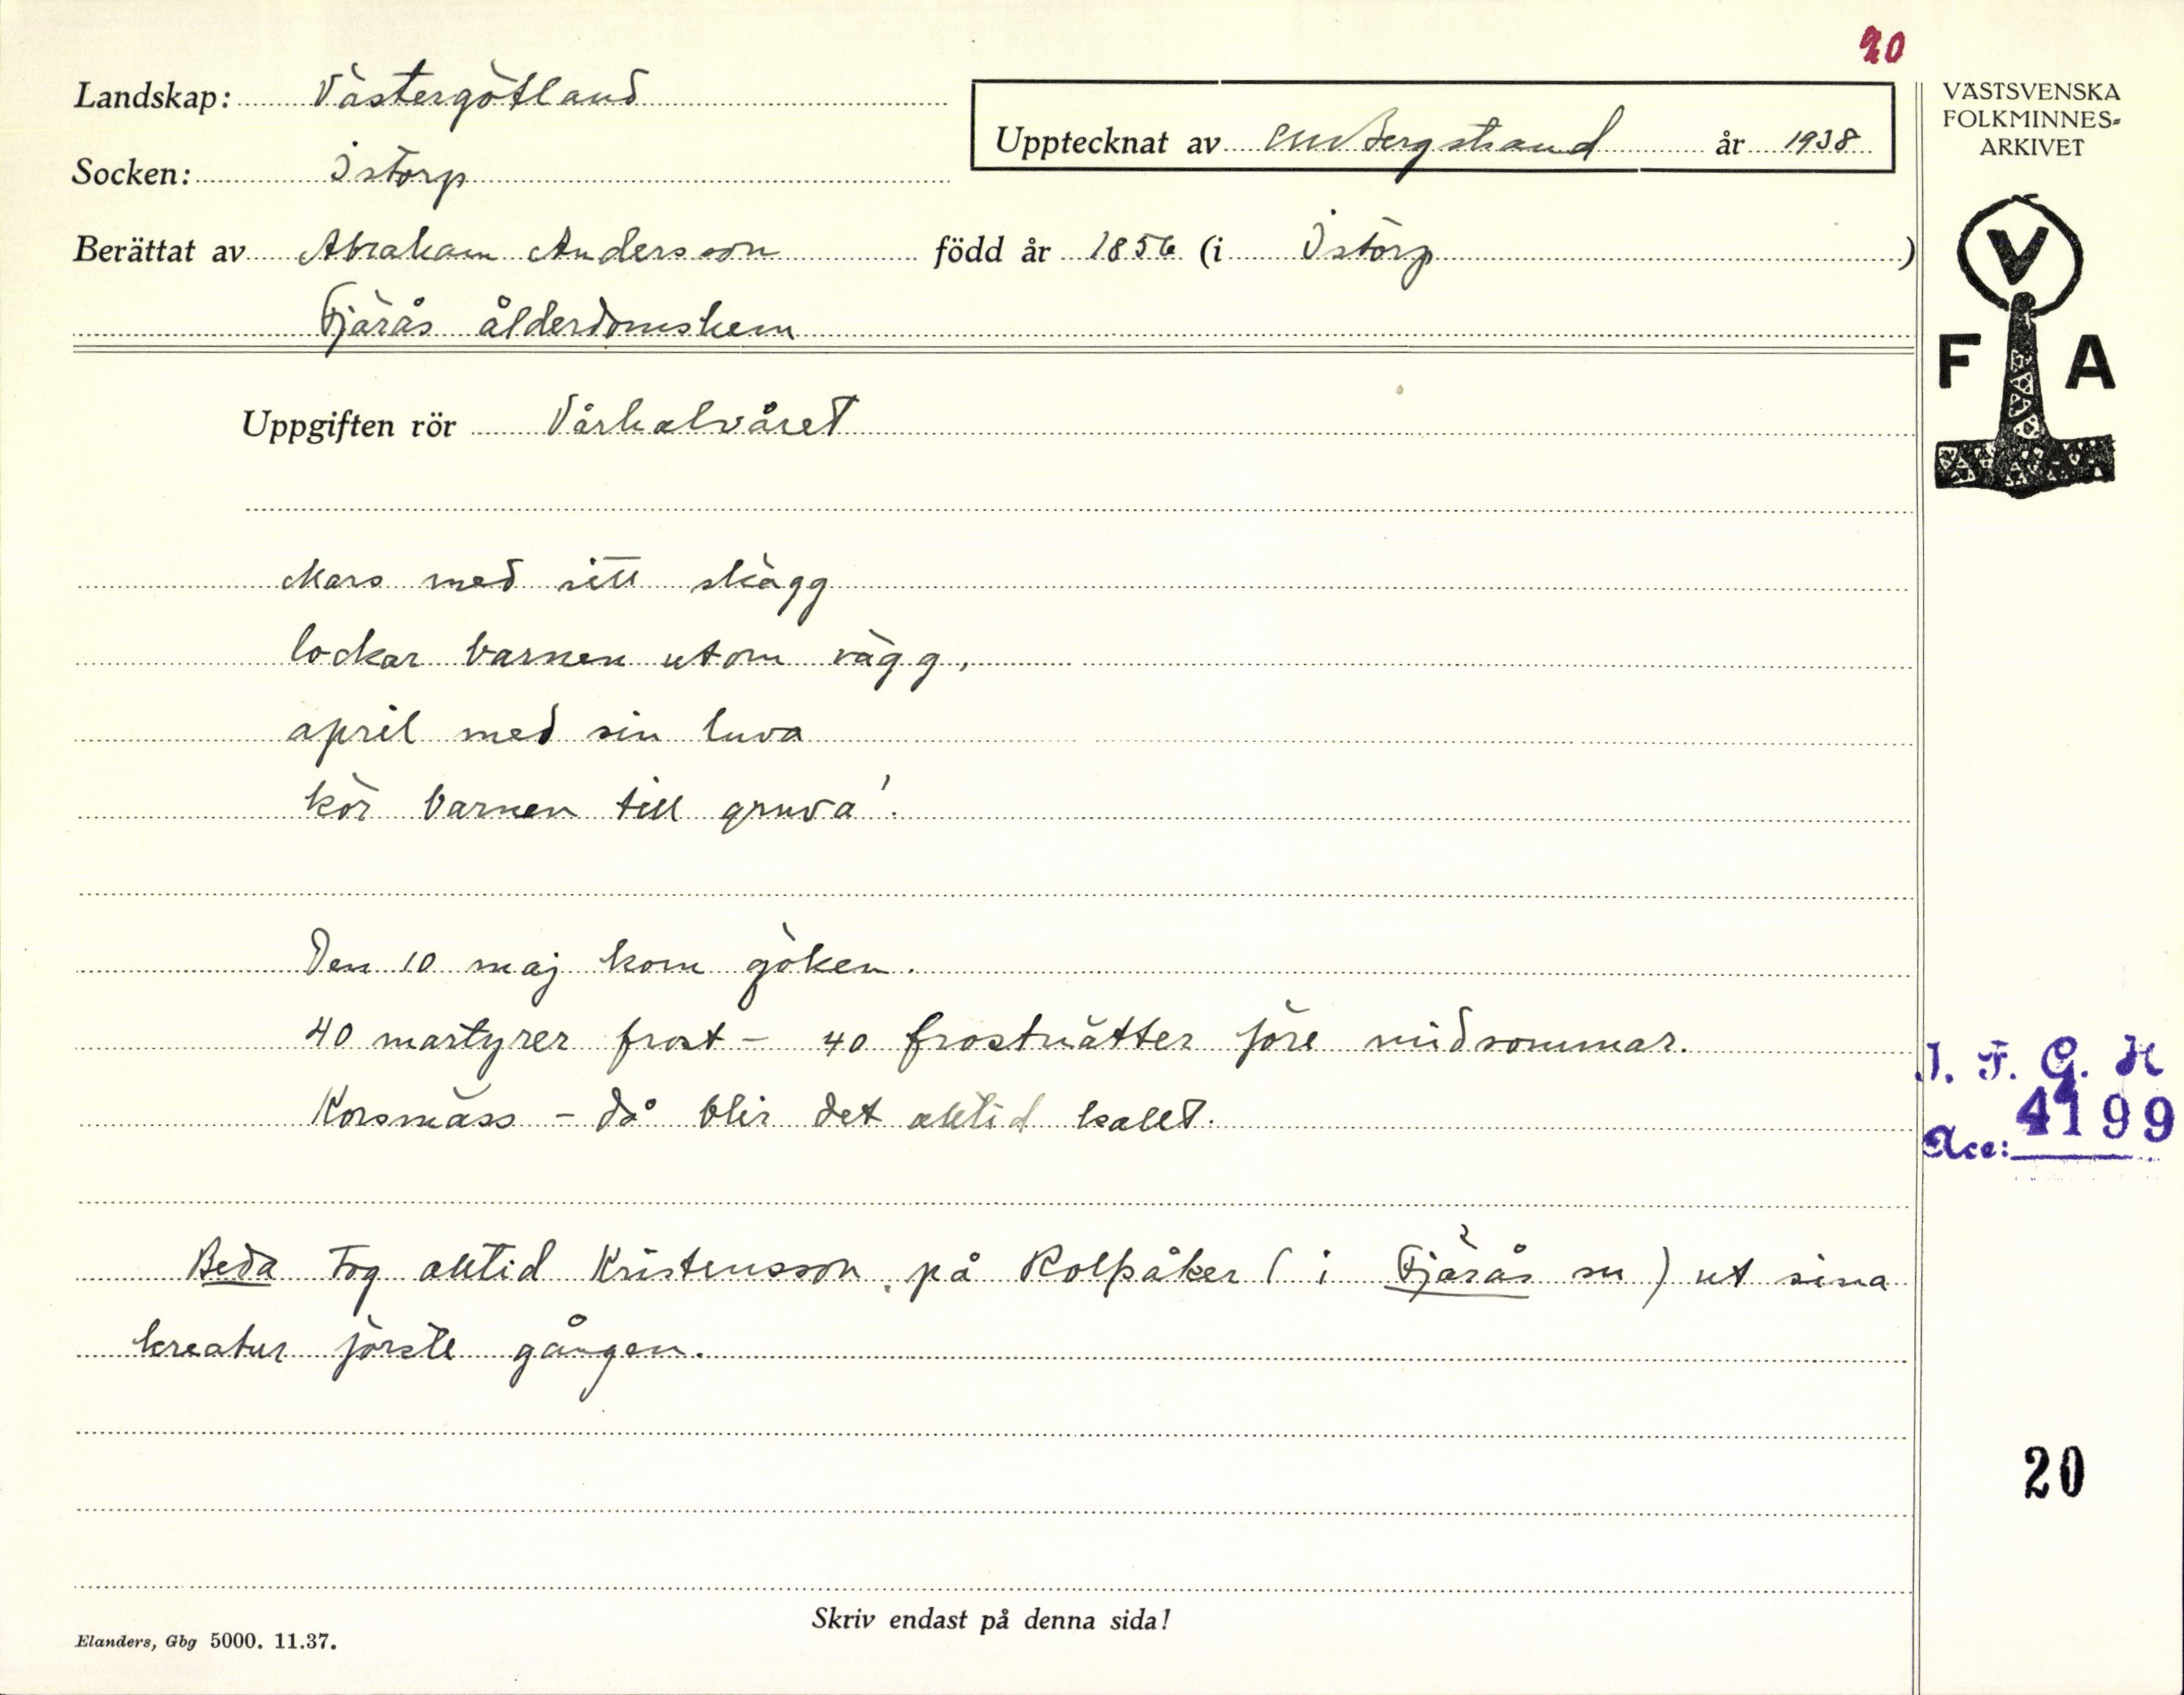 20
Landskap: Västergötland
Upptecknat av CM Bergstrand år 1938
VÄSTSVENSKA
FOLKMINNES-
ARKIVET
Socken: Istorp
Berättat av Abraham Andersson född år 1856 (i Istorp)
Fjärås ålderdomshem
V
F A
Uppgiften rör Vårhalvåret
Mars med sitt skägg
lockar barnen utom vägg,
april med sin luva
kör barnen till gruva!
Den 10 maj kom göken.
40 martyrer frost - 40 frostnätter före midsommar.
Korsmäss - då blir det alltid kallt.
I. F. G. H
Acc: 4199
Beda tog alltid Kristensson på Rolfsåker (i Fjärås sn) ut sina
kreatur förste gången.
20
Skriv endast på denna sida!
Elanders, Gbg 5000. 11.37.